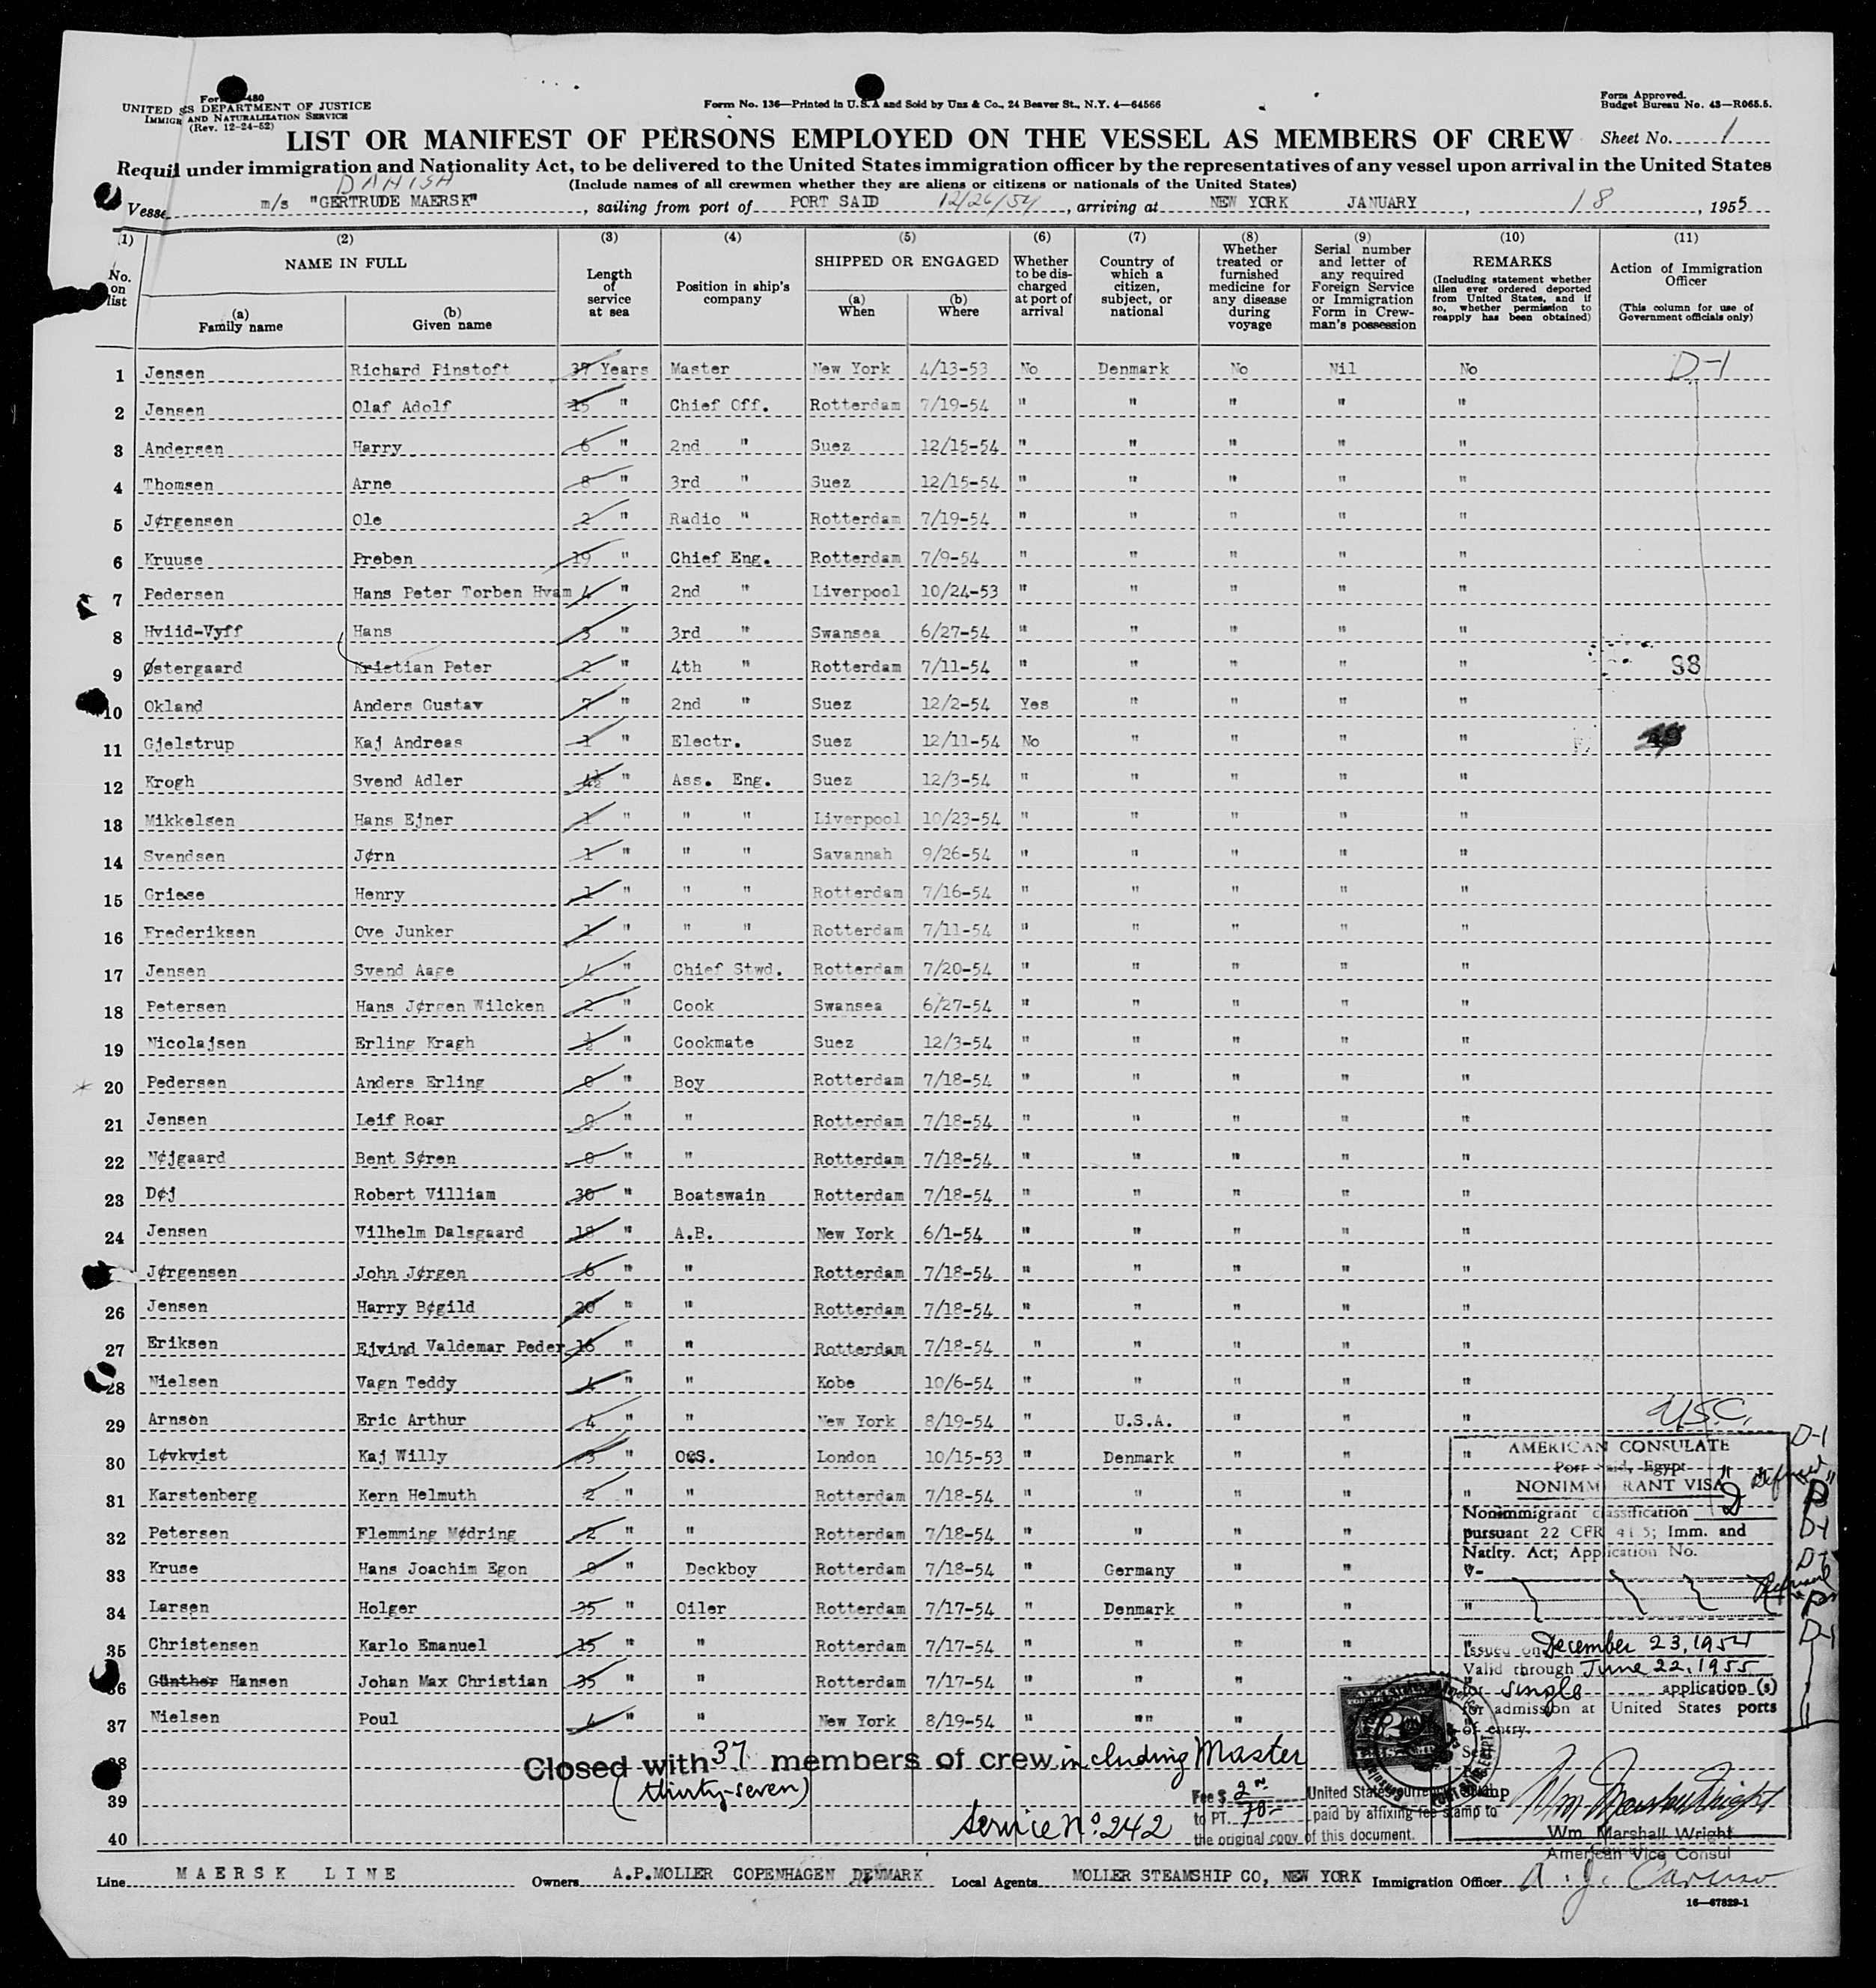 Form 480
UNITED S S DEPARTMENT OF JUSTICE
IMMIGR AND NATURALIZATION SERVICE
(Rev. 12-24-52)
Form No. 136—Printed in U.S.A and Sold by Unz & Co., 24 Beaver St., N.Y. 4—64566
Form Approved.
Budget Bureau No. 43—R065.5.
LIST OR MANIFEST OF PERSONS EMPLOYED ON THE VESSEL AS MEMBERS OF CREW
Sheet No. 1
Requi under immigration and Nationality Act, to be delivered to the United States immigration officer by the representatives of any vessel upon arrival in the United States
DANISH
(Include names of all crewmen whether they are aliens or citizens or nationals of the United States)
Vesse m/s "GERTRUDE MAERSK", sailing from port of PORT SAID 12/26/54, arriving at NEW YORK JANUARY, 18, 1955
(1) No. on list
(2) NAME IN FULL (a) Family name (b) Given name
(3) Length of service at sea
(4) Position in ship's company
(5) SHIPPED OR ENGAGED (a) When (b) Where
(6) Whether to be discharged at port of arrival
(7) Country of which a citizen, subject, or national
(8) Whether treated or furnished medicine for any disease during voyage
(9) Serial number and letter of any required Foreign Service or Immigration Form in Crewman's possession
(10) REMARKS (Including statement whether alien ever ordered deported from United States, and if so, whether permission to reapply has been obtained)
(11) Action of Immigration Officer (This column for use of Government officials only)
1 Jensen Richard Finstoft 37 Years Master New York 4/13-53 No Denmark No Nil No D-1
2 Jensen Olaf Adolf 15 " Chief Off. Rotterdam 7/19-54 " " " " "
3 Andersen Harry 6 " 2nd " Suez 12/15-54 " " " " "
4 Thomsen Arne 8 " 3rd " Suez 12/15-54 " " " " "
5 Jørgensen Ole 2 " Radio " Rotterdam 7/19-54 " " " " "
6 Kruuse Preben 19 " Chief Eng. Rotterdam 7/9-54 " " " " "
7 Pedersen Hans Peter Torben Hvam 4 " 2nd " Liverpool 10/24-53 " " " " "
8 Hviid-Vyff Hans 3 " 3rd " Swansea 6/27-54 " " " " "
9 Østergaard Kristian Peter 2 " 4th " Rotterdam 7/11-54 " " " " " 38
10 Okland Anders Gustav 7 " 2nd " Suez 12/2-54 Yes " " " "
11 Gjelstrup Kaj Andreas 1 " Electr. Suez 12/11-54 No " " " "
12 Krogh Svend Adler 4½ " Ass. Eng. Suez 12/3-54 " " " " "
13 Mikkelsen Hans Ejner 1 " " " Liverpool 10/23-54 " " " " "
14 Svendsen Jørn 1 " " " Savannah 9/26-54 " " " " "
15 Griese Henry 1 " " " Rotterdam 7/16-54 " " " " "
16 Frederiksen Ove Junker 1 " " " Rotterdam 7/11-54 " " " " "
17 Jensen Svend Aage 4 " Chief Stwd. Rotterdam 7/20-54 " " " " "
18 Petersen Hans Jørgen Wilcken 2 " Cook Swansea 6/27-54 " " " " "
19 Nicolajsen Erling Kragh ½ " Cookmate Suez 12/3-54 " " " " "
20 Pedersen Anders Erling 0 " Boy Rotterdam 7/18-54 " " " " "
21 Jensen Leif Roar 0 " " Rotterdam 7/18-54 " " " " "
22 Nøjgaard Bent Søren 0 " " Rotterdam 7/18-54 " " " " "
23 Døj Robert Villiam 30 " Boatswain Rotterdam 7/18-54 " " " " "
24 Jensen Vilhelm Dalsgaard 18 " A.B. New York 6/1-54 " " " " "
Jørgensen John Jørgen 6 " " Rotterdam 7/18-54 " " " " "
26 Jensen Harry Bøgild 20 " " Rotterdam 7/18-54 " " " " "
27 Eriksen Ejvind Valdemar Peder 16 " " Rotterdam 7/18-54 " " " " "
28 Nielsen Vagn Teddy 4 " " Kobe 10/6-54 " " " " "
29 Arnson Eric Arthur 4 " " New York 8/19-54 " U.S.A. " " " U.S.C.
30 Løvkvist Kaj Willy 3 " O.S. London 10/15-53 " Denmark " " " D-1
31 Karstenberg Kern Helmuth 2 " " Rotterdam 7/18-54 " " " " " Refused "D"
32 Petersen Flemming Mødring 2 " " Rotterdam 7/18-54 " " " " D-1
33 Kruse Hans Joachim Egon 0 " Deckboy Rotterdam 7/18-54 " Germany " " D-1
34 Larsen Holger 35 " Oiler Rotterdam 7/17-54 " Denmark " " " Refused
35 Christensen Karlo Emanuel 15 " " Rotterdam 7/17-54 " " " " " D-1
36 Günther Hansen Johan Max Christian 35 " " Rotterdam 7/17-54 " " " "
37 Nielsen Poul 4 " " New York 8/19-54 " "" "
38
39
40
AMERICAN CONSULATE
Port Said, Egypt
NONIMMIGRANT VISA
Nonimmigrant classification "D"
pursuant 22 CFR 41.5; Imm. and
Natlty. Act; Application No.
V-
Issued on December 23, 1954
Valid through June 22, 1955
for single application (s)
for admission at United States ports
of entry.
Wm Marshall Wright
Wm. Marshall Wright
American Vice Consul
Closed with 37 members of crew including Master
(thirty-seven)
Service No. 242
Fee $ 2.00 United States currency
to PT. 70.- paid by affixing fee stamp to
the original copy of this document.
Line MAERSK LINE Owners A.P.MOLLER COPENHAGEN DENMARK Local Agents MOLLER STEAMSHIP CO, NEW YORK Immigration Officer A. J. Caruso
16—67829-1